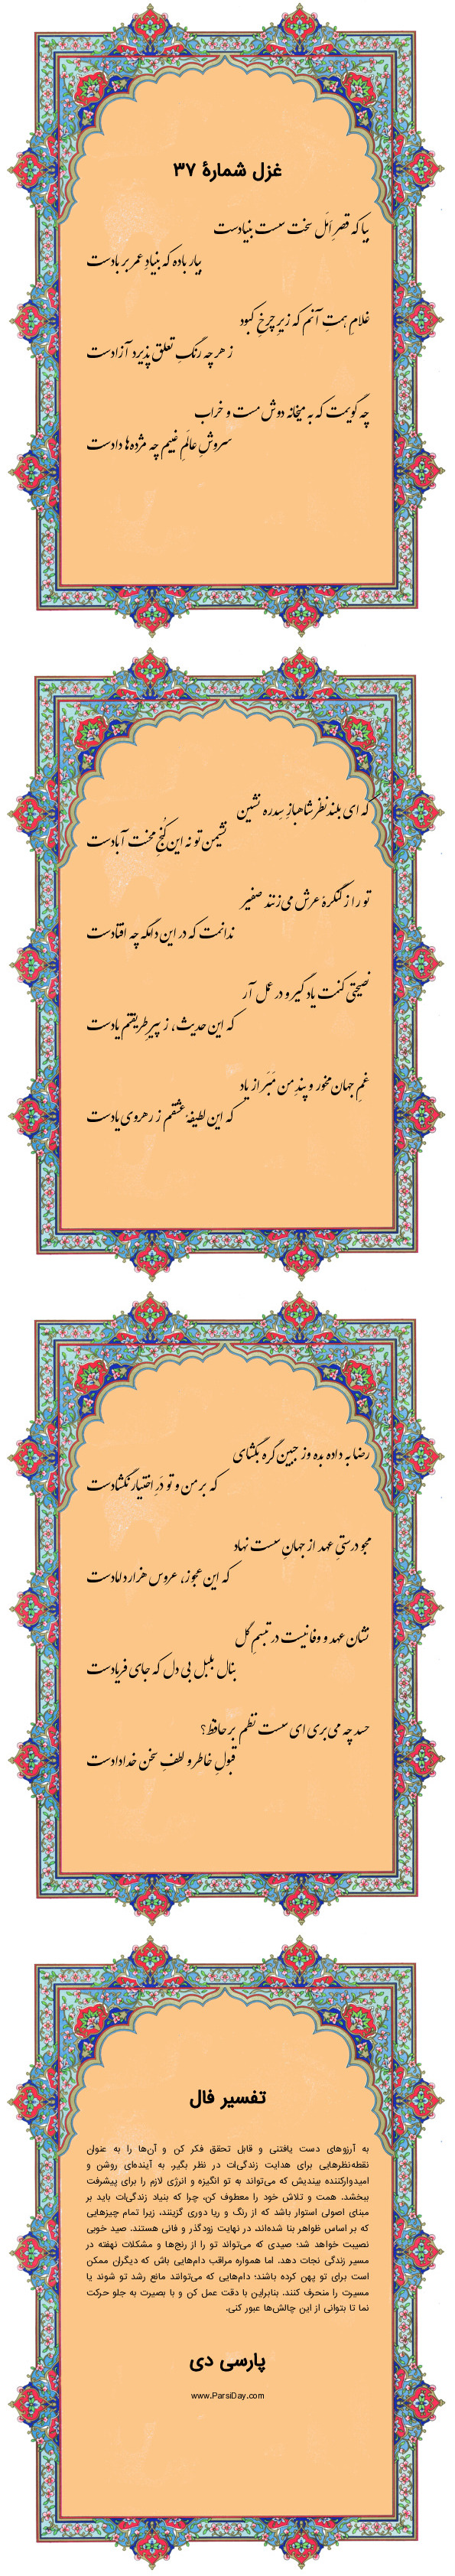 غزل شمارهٔ ۳۷
بیا که قصرِ اَمَل سخت سست بنیادست
بیار باده که بنیادِ عمر بر بادست
غلامِ همتِ آنم که زیرِ چرخِ کبود
ز هر چه رنگِ تعلق پذیرد آزادست
چه گویمت که به میخانه دوش مست و خراب
سروشِ عالَمِ غیبم چه مژده‌ها دادست
که ای بلندنظر شاهبازِ سِدره نشین
نشیمن تو نه این کُنجِ محنت آبادست
تو را ز کنگرهٔ عرش می‌زنند صفیر
ندانمت که در این دامگه چه افتادست
نصیحتی کنمت یاد گیر و در عمل آر
که این حدیث، ز پیرِ طریقتم یادست
غمِ جهان مخور و پندِ من مَبَر از یاد
که این لطیفهٔ عشقم ز رهروی یادست
رضا به داده بده وز جبین گره بگشای
که بر من و تو دَرِ اختیار نگشادست
مجو درستیِ عهد از جهانِ سست نهاد
که این عجوز، عروس هزار دامادست
نشان عهد و وفا نیست در تبسم گل
بنال بلبل بی دل که جای فریادست
حسد چه می‌بری ای سست نظم بر حافظ؟
قبولِ خاطر و لطفِ سخن خدادادست
تفسیر فال
به آرزوهای دست یافتنی و قابل تحقق فکر کن و آن‌ها را به عنوان
نقطه‌نظرهایی برای هدایت زندگی‌ات در نظر بگیر. به آینده‌ای روشن و
امیدوارکننده بیندیش که می‌تواند به تو انگیزه و انرژی لازم را برای پیشرفت
ببخشد. همت و تلاش خود را معطوف کن، چرا که بنیاد زندگی‌ات باید بر
مبنای اصولی استوار باشد که از رنگ و ریا دوری گزینند، زیرا تمام چیزهایی
که بر اساس ظواهر بنا شده‌اند، در نهایت زودگذر و فانی هستند. صید خوبی
نصیبت خواهد شد؛ صیدی که می‌تواند تو را از رنج‌ها و مشکلات نهفته در
مسیر زندگی نجات دهد. اما همواره مراقب دام‌هایی باش که دیگران ممکن
است برای تو پهن کرده باشند؛ دام‌هایی که می‌توانند مانع رشد تو شوند یا
مسیرت را منحرف کنند. بنابراین با دقت عمل کن و با بصیرت به جلو حرکت
نما تا بتوانی از این چالش‌ها عبور کنی.
پارسی دی
www.ParsiDay.com